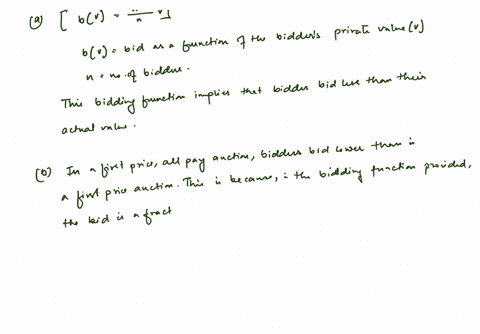 (a) [ b(v) = — v ]
n
b(v) = bid as a function of the bidder's private value (v)
n = no. of bidders.
This bidding function implies that bidder bid less than their
actual value.
(b) In a first price, all pay auction, bidders bid lower than in
a first price auction. This is because, in the bidding function provided,
the bid is a fract